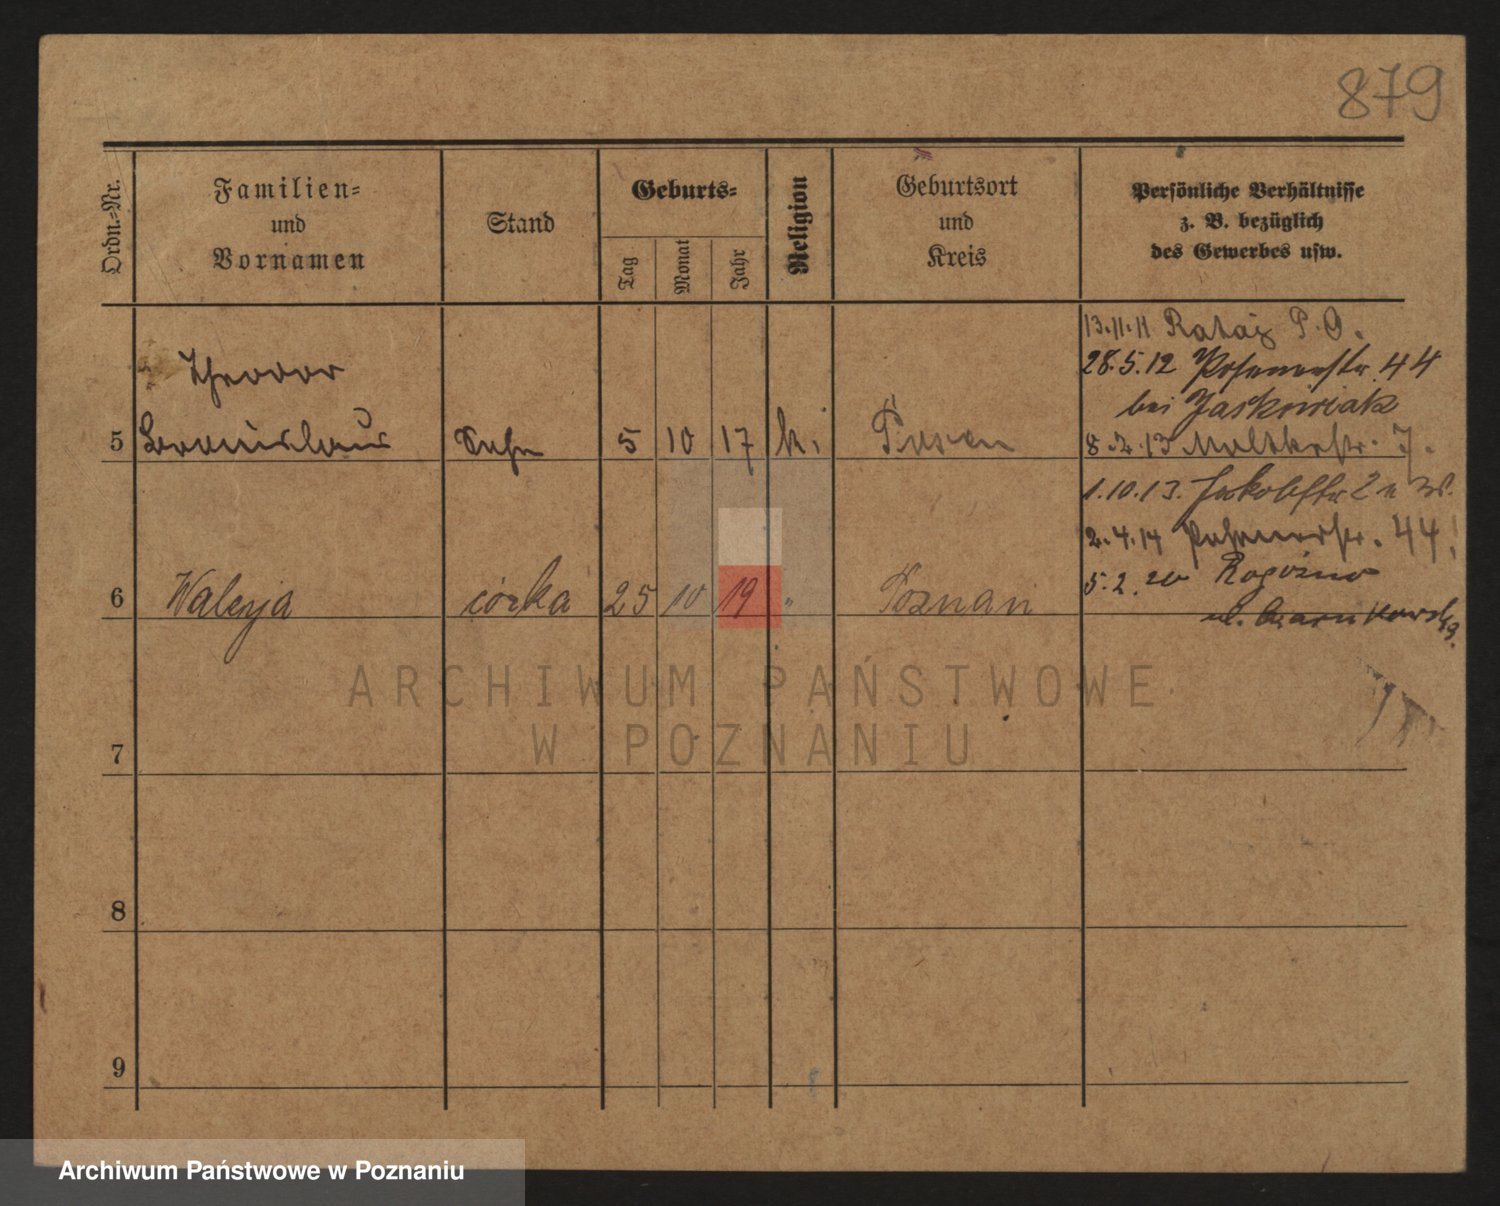 879
Ordn.-Nr.
Familien-
und
Vornamen
Stand
Geburts-
Tag
Monat
Jahr
Religion
Geburtsort
und
Kreis
Persönliche Verhältnisse
z. B. bezüglich
des Gewerbes usw.
13.11.11 Rataj P. O.
28.5.12 Posenerstr. 44
bei Jaskowiak
8. 13 Moltkestr. 7.
1.10.13. Jakobstr 2
2.4.14 Posenerstr. 44
5.2.20 Rogoźno
ul. Czarnkowska
Theodor
5 Bronislaus Sohn 5 10 17 k. Posen
6 Walerja córka 25 10 19 " Poznań
7
8
9
ARCHIWUM PAŃSTWOWE
W POZNANIU
Archiwum Państwowe w Poznaniu